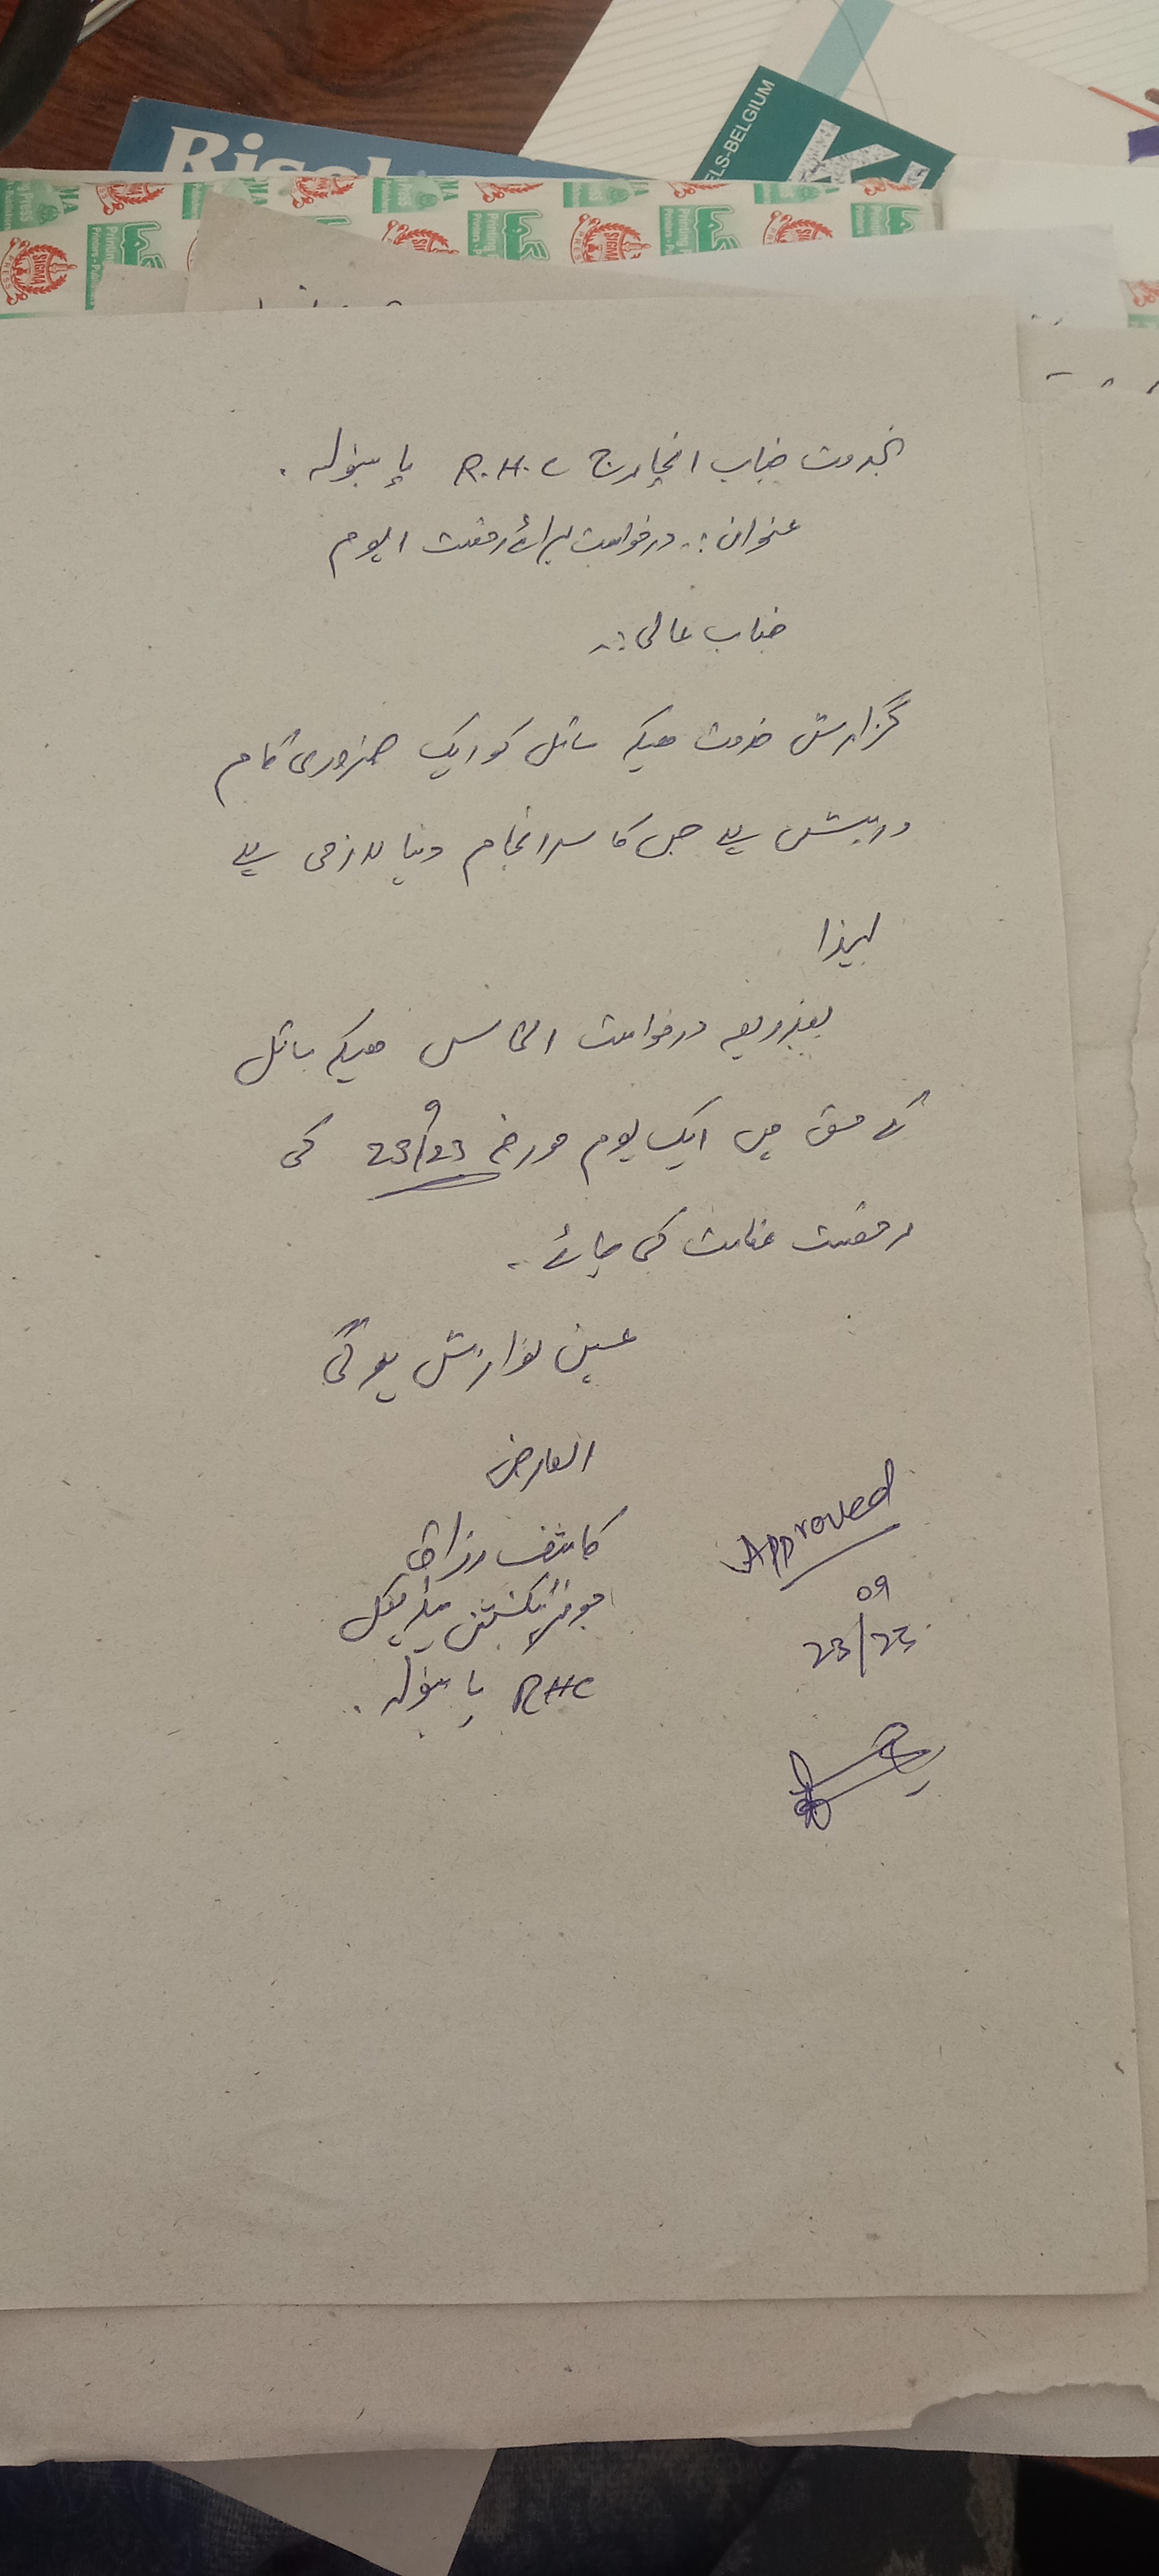 Risek
ELS-BELGIUM
SIGMA PRESS
Printing Press
Printers - Publishers
بخدمت جناب انچارج R.H.C پاہنولہ۔
عنوان:۔ درخواست برائے رخصت الیوم
جناب عالی:۔
گزارش خدمت ھیکہ سائل کو ایک ضروری کام
درپیش ہے جس کا سرانجام دینا لازمی ہے
لہذا
بذریعہ درخواست التماس ھیکہ سائل
کے حق میں ایک یوم مورخہ 23/9/23 کی
رخصت عنایت کی جائے۔
عین نوازش ہو گی
العارض
کاشف رزاق
جونئیر ٹیکنیشن میڈیکل
RHC پاہنولہ۔
Approved
23/09/23